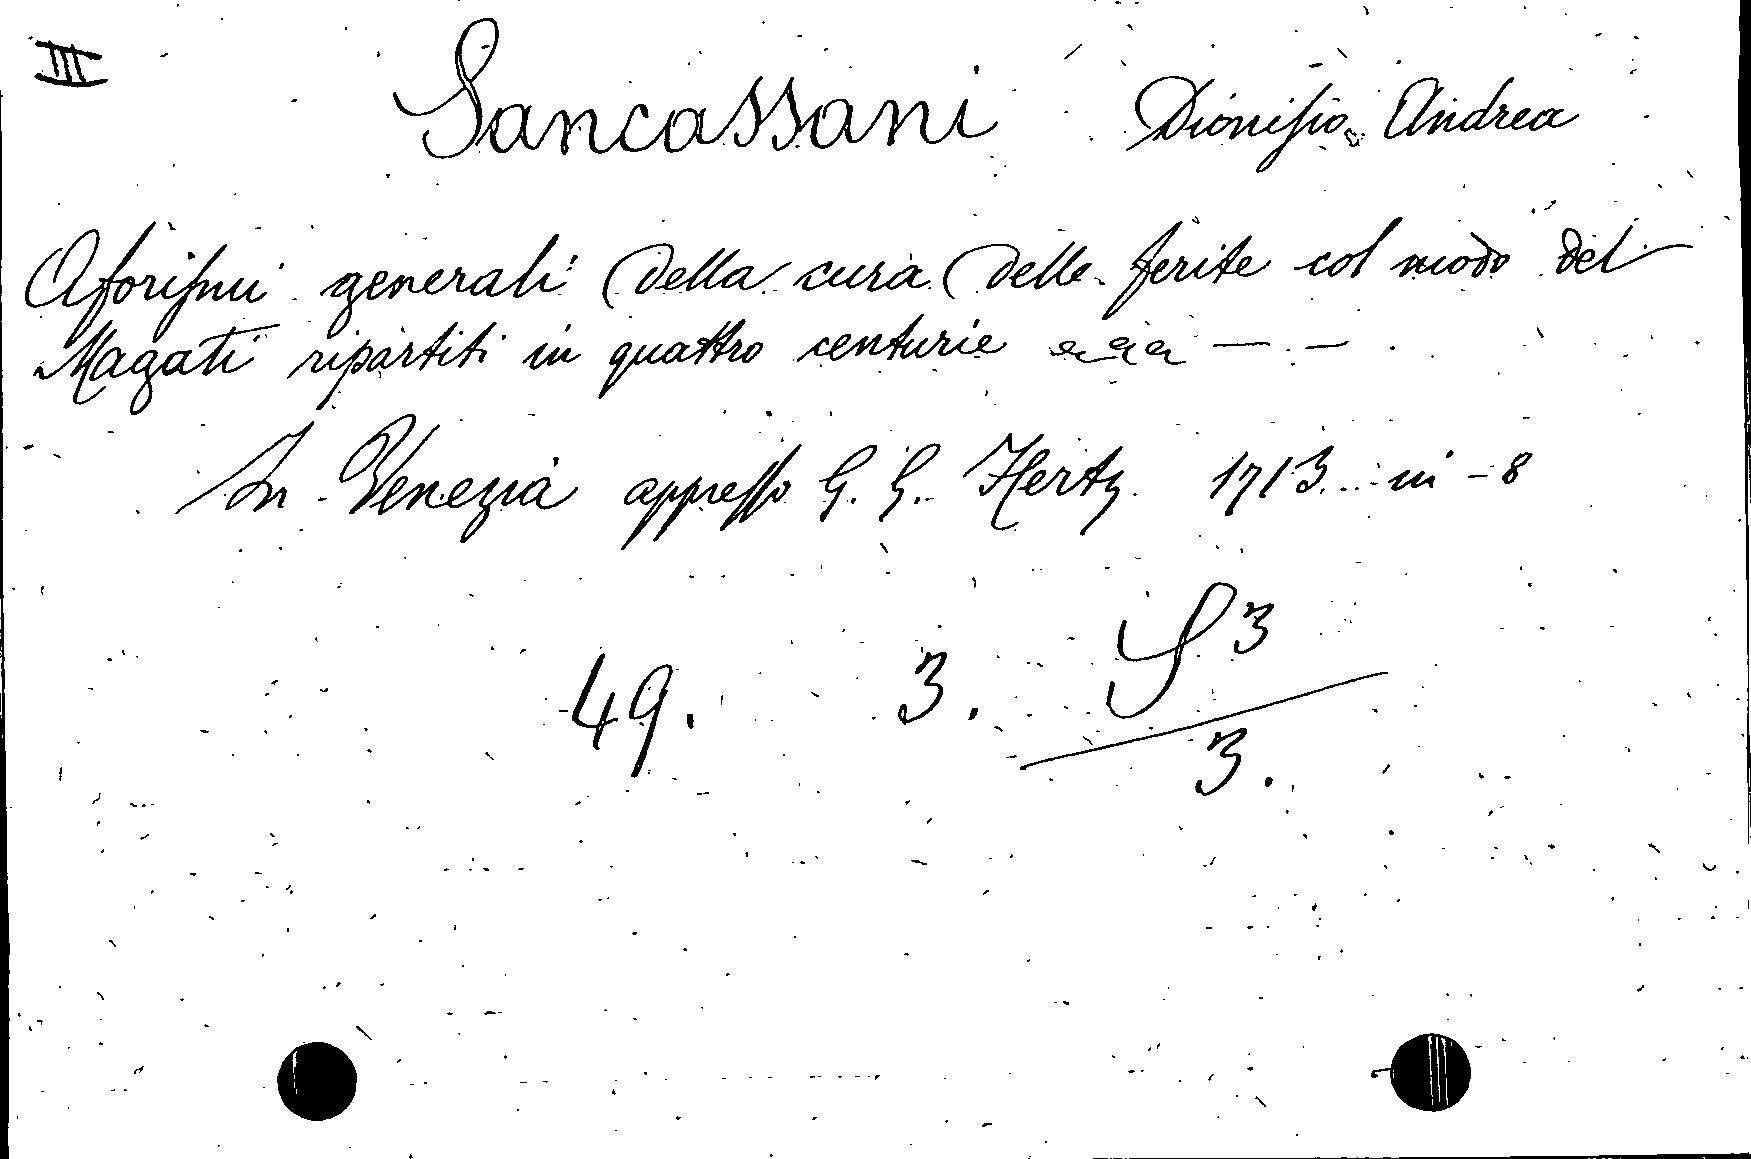 III
Sancassani Dionisio Andrea
Aforismi generali della cura delle ferite col modo del
Magati ripartiti in quattro centurie — —
In Venezia appresso G. G. Hertz 1713. in-8
49. 3. S3
3.